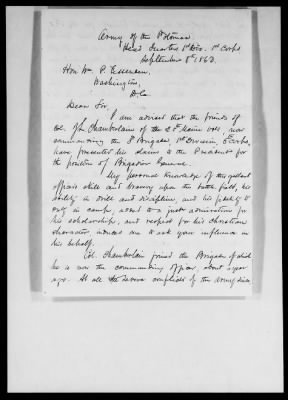 Army of the Potomac
Head Quarters 1st Div. 5th Corps
September 8th 1863.
Hon Wm. P. Fessenden,
Washington,
D.C.
Dear Sir,
I am advised that the friends of
Col. J.L. Chamberlain of the 20th Maine vols. now
commanding the 3d Brigade, 1st Division, 5 Corps,
have presented his claims to the President for
the position of Brigadier General.
My personal knowledge of this gallant
officers skill and bravery upon the battle field, his
ability in drill and discipline, and his fidelity to
duty in camp, added to a just admiration for
his scholarship, and respect for his Christian
character, induces me to ask your influence in
his behalf.
Col. Chamberlain joined the Brigade of which
he is now the commanding officer, about a year
ago. At all the severe campaigns of the army since